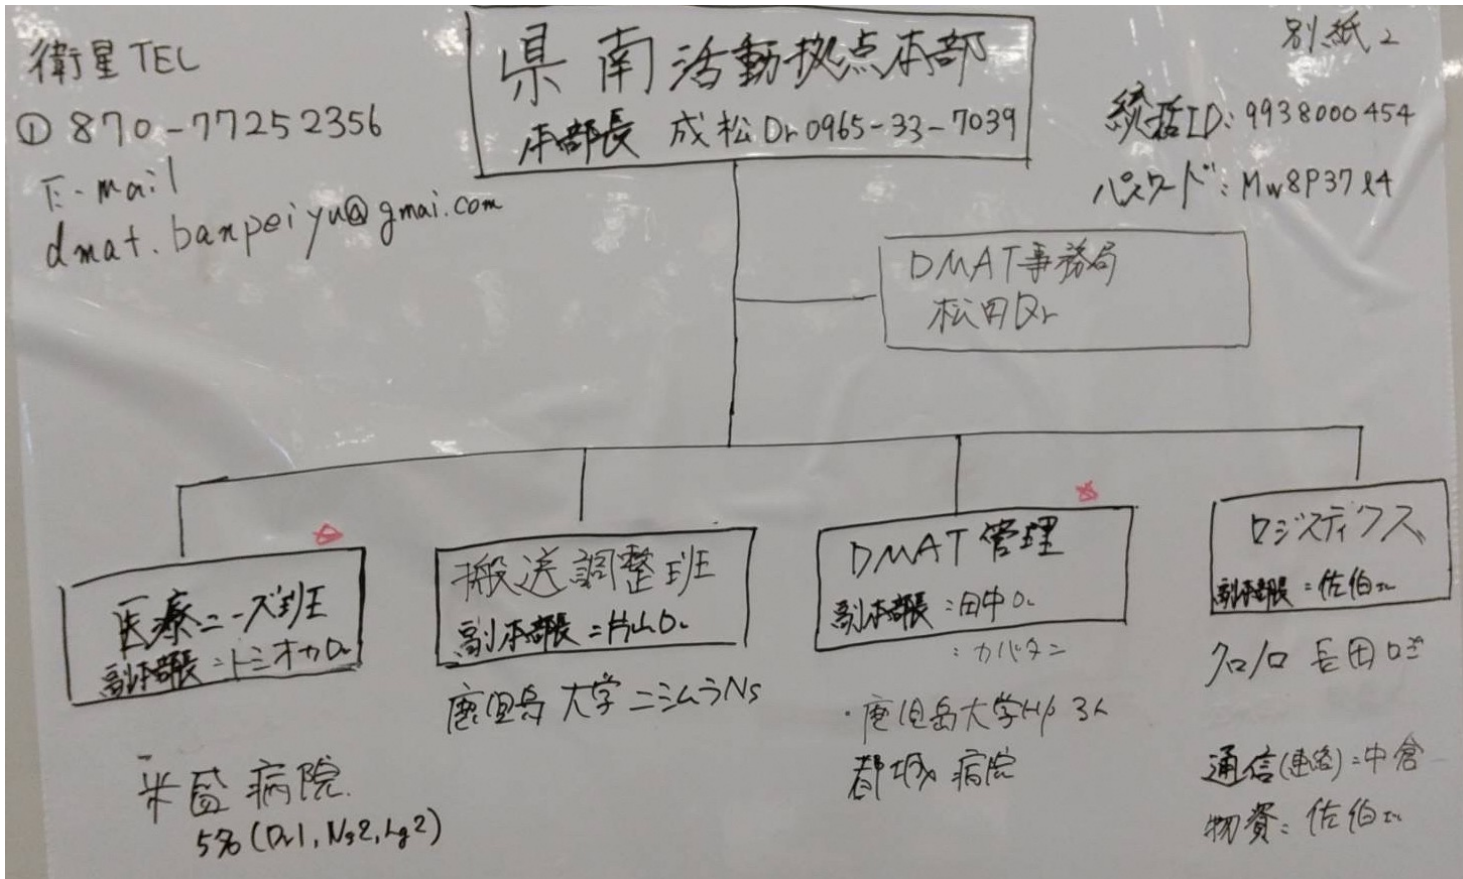 衛星TEL
① 870-77252356
E-mail
dmat.banpeiyu@gmai.com
県南活動拠点本部
本部長 成松Dr 0965-33-7039
別紙2
統括ID: 9938000454
パスワード: Mw8P37l4
DMAT事務局
松田Dr
医療ニーズ班
副本部長:トミオカDr
米盛病院
5名(Dr1, Ns2, Lg2)
搬送調整班
副本部長:片山Dr
鹿児島大学 ニシムラNs
DMAT管理
副本部長:田中Dr
:カバタニ
・鹿児島大学Hp 3人
都城病院
ロジスティクス
副本部長:佐伯
クロノロ 長田ロジ
通信(連絡):中倉
物資:佐伯